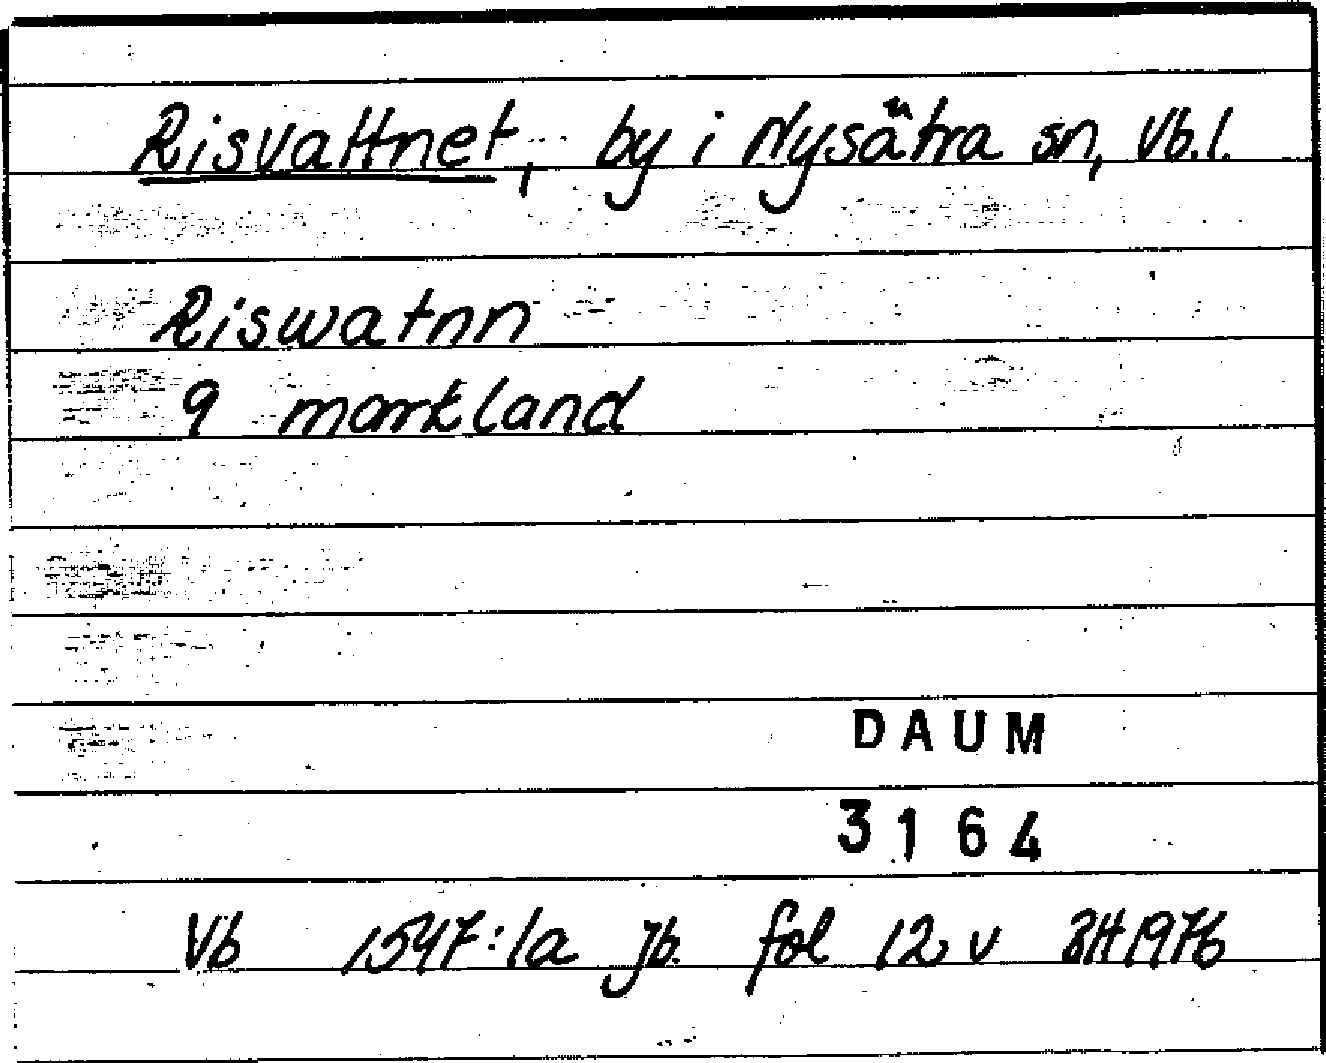 Risvattnet, by i Nysätra sn, Vb.l.
Riswatnn
9 markland
DAUM
3164
Vb 1547:1a jb. fol 12 v 1976